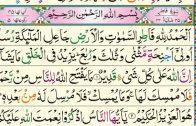 بِسْمِ اللّٰهِ الرَّحْمٰنِ الرَّحِيْمِ
اَلْحَمْدُ لِلّٰهِ فَاطِرِ السَّمٰوٰتِ وَالْاَرْضِ جَاعِلِ الْمَلٰٓئِكَةِ
اَجْنِحَةٍ مَّثْنٰى وَثُلٰثَ وَرُبٰعَ يَزِيْدُ فِي الْخَلْقِ مَا
اللّٰهَ عَلٰى كُلِّ شَيْءٍ قَدِيْرٌ مَا يَفْتَحِ اللّٰهُ لِلنَّاسِ مِنْ
فَلَا مُمْسِكَ لَهَا وَمَا يُمْسِكْ فَلَا مُرْسِلَ لَهٗ مِنْ بَعْدِهٖ
الْعَزِيْزُ الْحَكِيْمُ يٰٓاَيُّهَا النَّاسُ